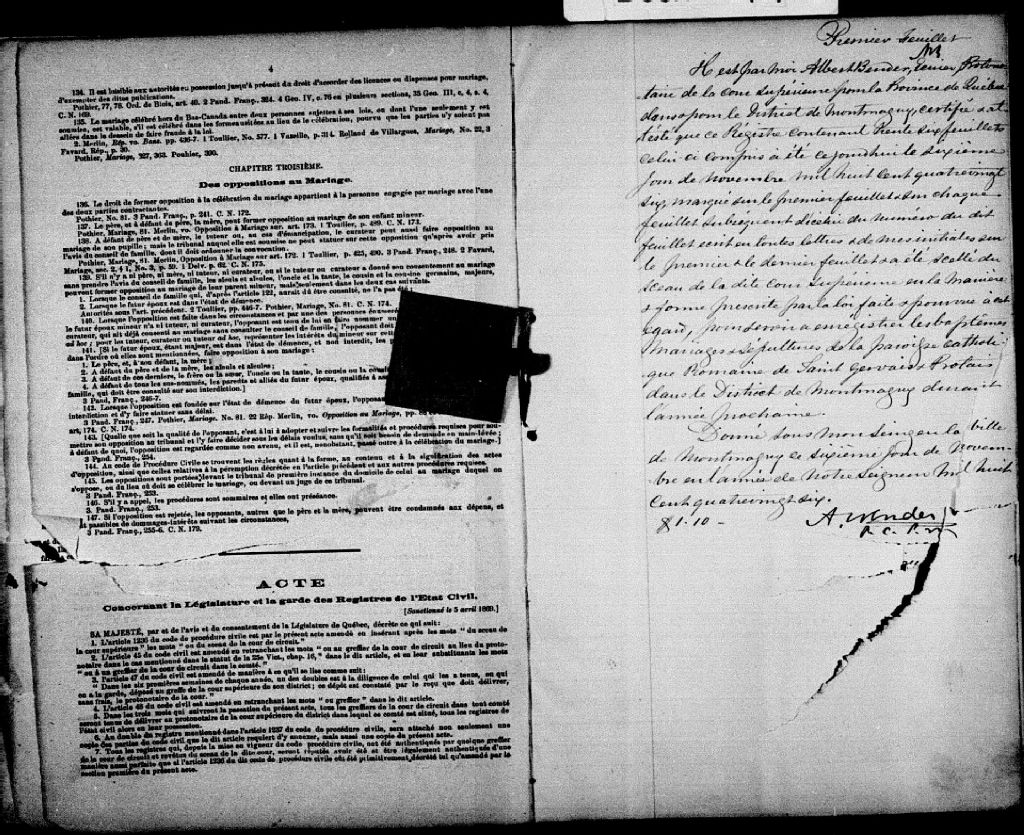 4
134. Il est loisible aux autorités en possession jusqu'à présent du droit d'accorder des licences ou dispenses pour mariage,
d'exempter des dites publications.
Pothier, 77, 78. Ord. de Blois, art. 40. 2 Pand. Franç. 324. 4 Geo. IV, c. 76 en plusieurs sections, 35 Geo. III, c. 4, s. 4,
C. N. 169.
135. Le mariage célébré hors du Bas-Canada entre deux personnes sujettes à ses lois, ou dont l'une seulement y est
soumise, est valable, s'il est célébré dans les formes usitées au lieu de la célébration, pourvu que les parties n'y soient pas
allées dans le dessein de faire fraude à la loi.
2. Merlin, Rép. vo. Bans. pp. 436-7. 1 Toullier, No. 577. 1 Vazeille, p. 314. Rolland de Villargues, Mariage, No. 22, 3
Favard, Rép., p. 30.
Pothier, Mariage, 327, 363. Pouhier, 390.
CHAPITRE TROISIÈME.
Des oppositions au Mariage.
136. Le droit de former opposition à la célébration du mariage appartient à la personne engagée par mariage avec l'une
des deux parties contractantes.
Pothier, No. 81. 3 Pand. Franç., p. 241. C. N. 172.
137. Le père, et à défaut du père, la mère, peut former opposition au mariage de son enfant mineur.
Pothier, Mariage, 81. Merlin, vo. Opposition à Mariage sur. art. 173. 1 Toullier, p. 489. C. N. 173.
138. A défaut de père et de mère, le tuteur ou, en cas d'émancipation, le curateur peut aussi faire opposition au
mariage de son pupille; mais le tribunal auquel elle est soumise ne peut statuer sur cette opposition qu'après avoir pris
l'avis du conseil de famille, dont il doit ordonner la convocation.
Pothier, Mariage, 81. Merlin, Opposition à Mariage sur art. 172. 1 Toullier, p. 425, 490. 3 Pand. Franç., 248. 2 Favard,
Mariage, sec. 2, § 1, No. 3, p. 59. 1 Delv. p. 62. C. N. 175.
139. S'il n'y a ni père, ni mère, ni tuteur, ni curateur, ou si le tuteur ou curateur a donné son consentement au mariage
sans prendre l'avis du conseil de famille, les aïeuls et aïeules, l'oncle et la tante, le cousin et la cousine germains, majeurs,
peuvent former opposition au mariage de leur parent mineur, mais seulement dans les deux cas suivants:
1. Lorsque le conseil de famille qui, d'après l'article 122, aurait dû être consulté, ne l'a pas été;
2. Lorsque le futur époux est dans l'état de démence.
Autorités sous l'art. précédent. 2 Toullier, pp. 446-7. Pothier, Mariage, No. 81. C. N. 174.
140. Lorsque l'opposition est faite dans les circonstances et par une des personnes énumérées
le futur époux mineur n'a ni tuteur, ni curateur, l'opposant est tenu de lui en faire nommer un
curateur, qui ait déjà consenti au mariage sans consulter le conseil de famille, l'opposant doit
ad hoc; pour les tuteur, curateur ou tuteur ad hoc, représenter les intérêts du mineur sur cette
141. [Si le futur époux, étant majeur, est dans l'état de démence, et non interdit, les
dans l'ordre où elles sont mentionnées, faire opposition à son mariage:
1. Le père, et, à son défaut, la mère;
2. A défaut du père et de la mère, les aïeuls et aïeules;
3. A défaut de ces derniers, le frère ou la sœur, l'oncle ou la tante, le cousin ou la
4. A défaut de tous les sus-nommés, les parents et alliés du futur époux, qualifiés à
famille, qui doit être consulté sur son interdiction.]
3 Pand. Franç., 246-7.
142. Lorsque l'opposition est fondée sur l'état de démence du futur époux, l'opposant
interdiction et d'y faire statuer sans délai.
3 Pand. Franç., 247. Pothier, Mariage, No. 81. 22 Rép. Merlin, vo. Opposition au Mariage, pp.
art, 174. C. N. 174.
143. [Quelle que soit la qualité de l'opposant, c'est à lui à adopter et suivre les formalités et procédures requises pour sou-
mettre son opposition au tribunal et l'y faire décider sous les délais voulus, sans qu'il soit besoin de demande en main-levée;
à défaut de quoi, l'opposition est regardée comme non avenue, et il est, nonobstant, passé outre à la célébration du mariage.]
3 Pand. Franç., 254.
144. Au code de Procédure Civile se trouvent les règles quant à la forme, au contenu et à la signification des actes
d'opposition, ainsi que celles relatives à la péremption décrétée en l'article précédent et aux autres procédures requises.
145. Les oppositions sont portées devant le tribunal de première instance du domicile de celui au mariage duquel on
s'oppose, ou du lieu où doit se célébrer le mariage, ou devant un juge de ce tribunal.
3 Pand. Franç., 253.
146. S'il y a appel, les procédures sont sommaires et elles ont préséance.
3 Pand. Franç., 253.
147. Si l'opposition est rejetée, les opposants, autres que le père et la mère, peuvent être condamnés aux dépens, et
passibles de dommages-intérêts suivant les circonstances,
3 Pand. Franç., 255-6. C. N. 179.
ACTE
Concernant la Législature et la garde des Registres de l'Etat Civil.
[Sanctionné le 5 avril 1869.]
SA MAJESTÉ, par et de l'avis et du consentement de la Législature de Québec, décrète ce qui suit:
1. L'article 1236 du code de procédure civile est par le présent acte amendé en insérant après les mots "du sceau de
la cour supérieure" les mots "ou du sceau de la cour de circuit."
2. L'article 45 du code civil est amendé en retranchant les mots "ou au greffier de la cour de circuit au lieu du proto-
notaire dans le cas mentionné dans le statut de la 25e Vict., chap. 16," dans le dit article, et en leur substituants les mots
"ou à un greffier de la cour de circuit dans le comté."
3. L'article 47 du code civil est amendé de manière à ce qu'il se lise comme suit:
"Dans les six premières semaines de chaque année, un des doubles est à la diligence de celui qui les a tenus, ou qui
en a la garde, déposé au greffe de la cour supérieure de son district; ce dépôt est constaté par le reçu que doit délivrer,
sans frais, le protonotaire de la cour."
4. L'article 48 du code civil est amendé en retranchant les mots "ou greffier" dans le dit article.
5. Dans les trois mois qui suivront la passation du présent acte, tous les greffiers de la cour de circuit dans tout comté
seront tenus de délivrer au protonotaire de la cour supérieure du district dans lequel ce comté est situé, tous les registres de
l'état civil alors en leur possession.
6. Au double du registre mentionné dans l'article 1237 du code de procédure civile, sera attaché non seulement une
copie des parties du code civil que le dit article requiert d'y annexer, mais aussi une copie du présent acte.
7. Tous les registres qui, depuis la mise en vigueur du code procédure civile, ont été authentiqués par quelque greffier
de la cour de circuit et revêtus du sceau de la dite cour, seront réputés avoir été et être légalement authentiqués d'une
manière aussi parfaite que si l'article 1236 du dit code de procédure civile eût été primitivement décrété tel qu'amendé par la
section première du présent acte.
Premier feuillet
Il est par moi Albert Bender, Ecuier, Protono
taire de la Cour Supérieure pour la Province de Québec
dans & pour le District de Montmagny, certifié & at
testé que ce Régistre contenant trente six feuillets
celui ci compris a été ce jourdhui le sixième
jour de Novembre mil huit cent quatrevingt
six, marqué sur le premier feuillet & sur chaque
feuillet subséquent d'icelui du numéro du dit
feuillet écrit en toutes lettres & de mes initiales sur
le premier & le dernier feuillet & a été scellé du
sceau de la dite Cour Supérieure en la manière
& forme prescrite par la loi faite & pourvue à cet
égard, pour servir à enrégistrer les baptêmes
Mariages & sépultures de la paroisse Catholi-
que Romaine de Saint Gervais & Protais
dans le District de Montmagny durant
l'année prochaine.
Donné sous mon seing en la ville
de Montmagny ce sixième jour de Novem-
bre en l'année de Notre Seigneur mil huit
cent quatrevingt six.
$1.10 -
A Bender
P. C. S. M